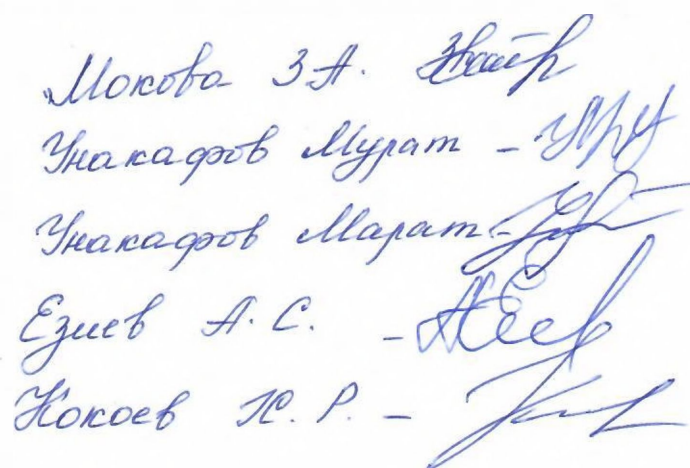 Мокова З А.
Унакафов Мурат -
Унакафов Марат -
Езиев А. С. -
Кокоев Х. Р. -